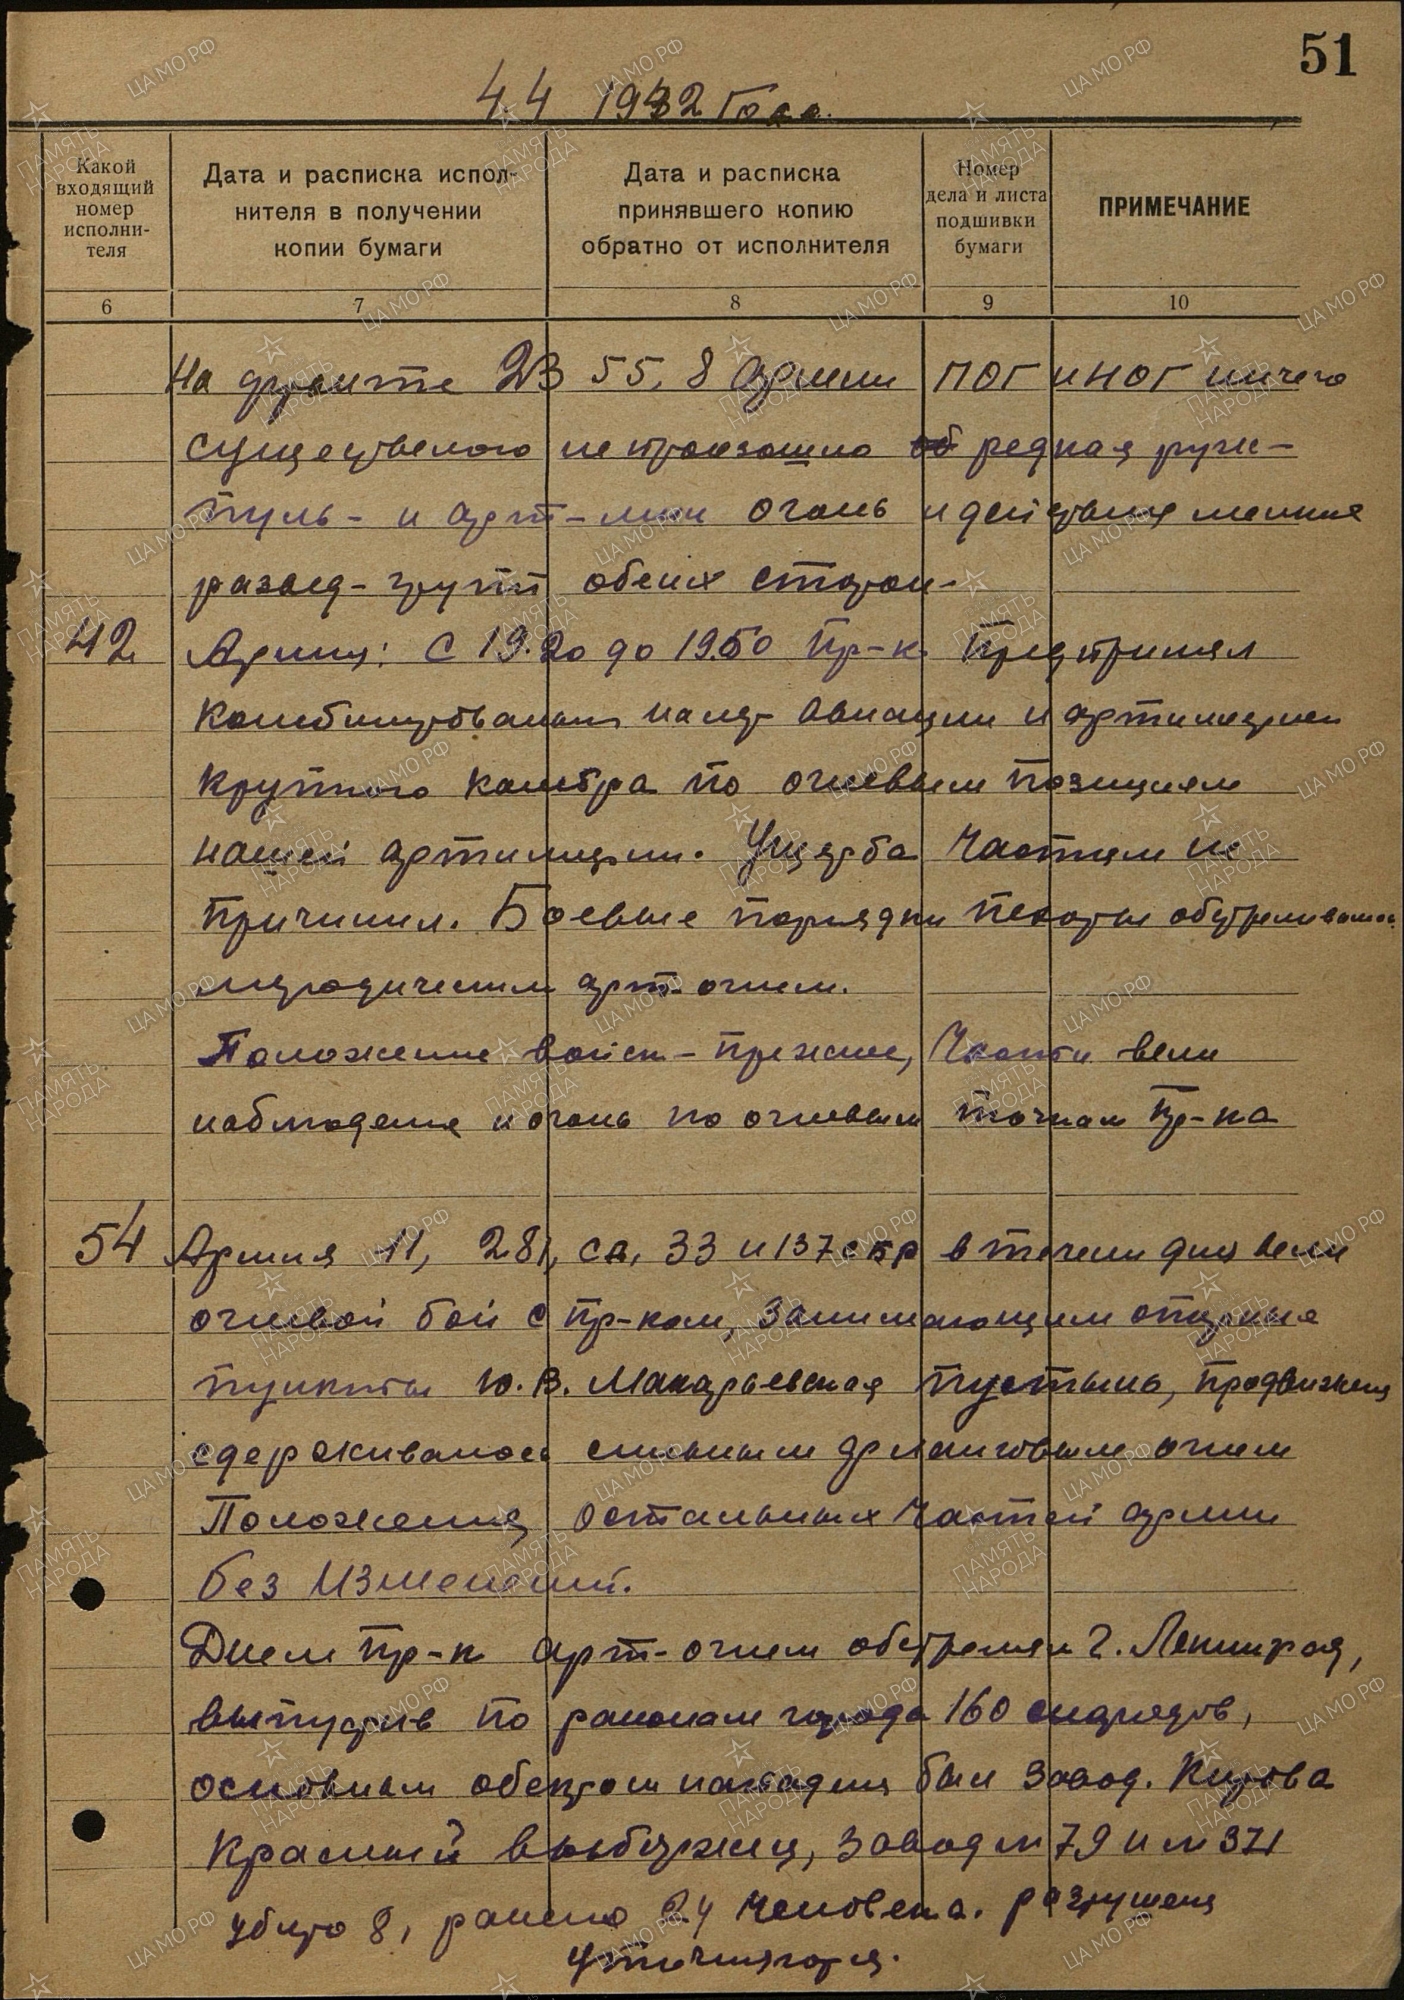 51
4.4 1942 Года.
Какой входящий номер исполни-теля
Дата и расписка испол-нителя в получении копии бумаги
Дата и расписка принявшего копию обратно от исполнителя
Номер дела и листа подшивки бумаги
ПРИМЕЧАНИЕ
6 7 8 9 10
На фронте 23 55, 8 Армии ПОГ и НОГ ничего
существеного непроизошло редкая руж-
пуль- и арт-мин огонь и действия мелких
развед-групп обеих сторон-
42 Армия: С 19.20 до 19.50 Пр-к Предпринял
комбинированый налет авиации и артилерией
крупного калибра по огневым позициям
нашей артилерии. Ущерба частям не
причинил. Боевые порядки пехоты обстреливались
периодическим арт-огнем.
Положение войск - прежнее, Части вели
наблюдение и огонь по огневым точкам Пр-ка
54 Армия 11, 281, сд, 33 и 137 сбр в течени дня вели
огневой бой с пр-ком, занимающим опорные
пункты ю.в. Макарьевская пустынь, продвижения
сдерживалось сильным фланговым огнем
Положения остальных частей армии
без изменений.
Днем Пр-к арт-огнем обстрелял г. Ленинград,
выпустив по районам города 160 снарядов,
основным обектом нападения был Завод. Кирова
Красный выборжец, Завод № 79 и № 371
убито 8, ранено 24 человека. разрушения
уточняются.